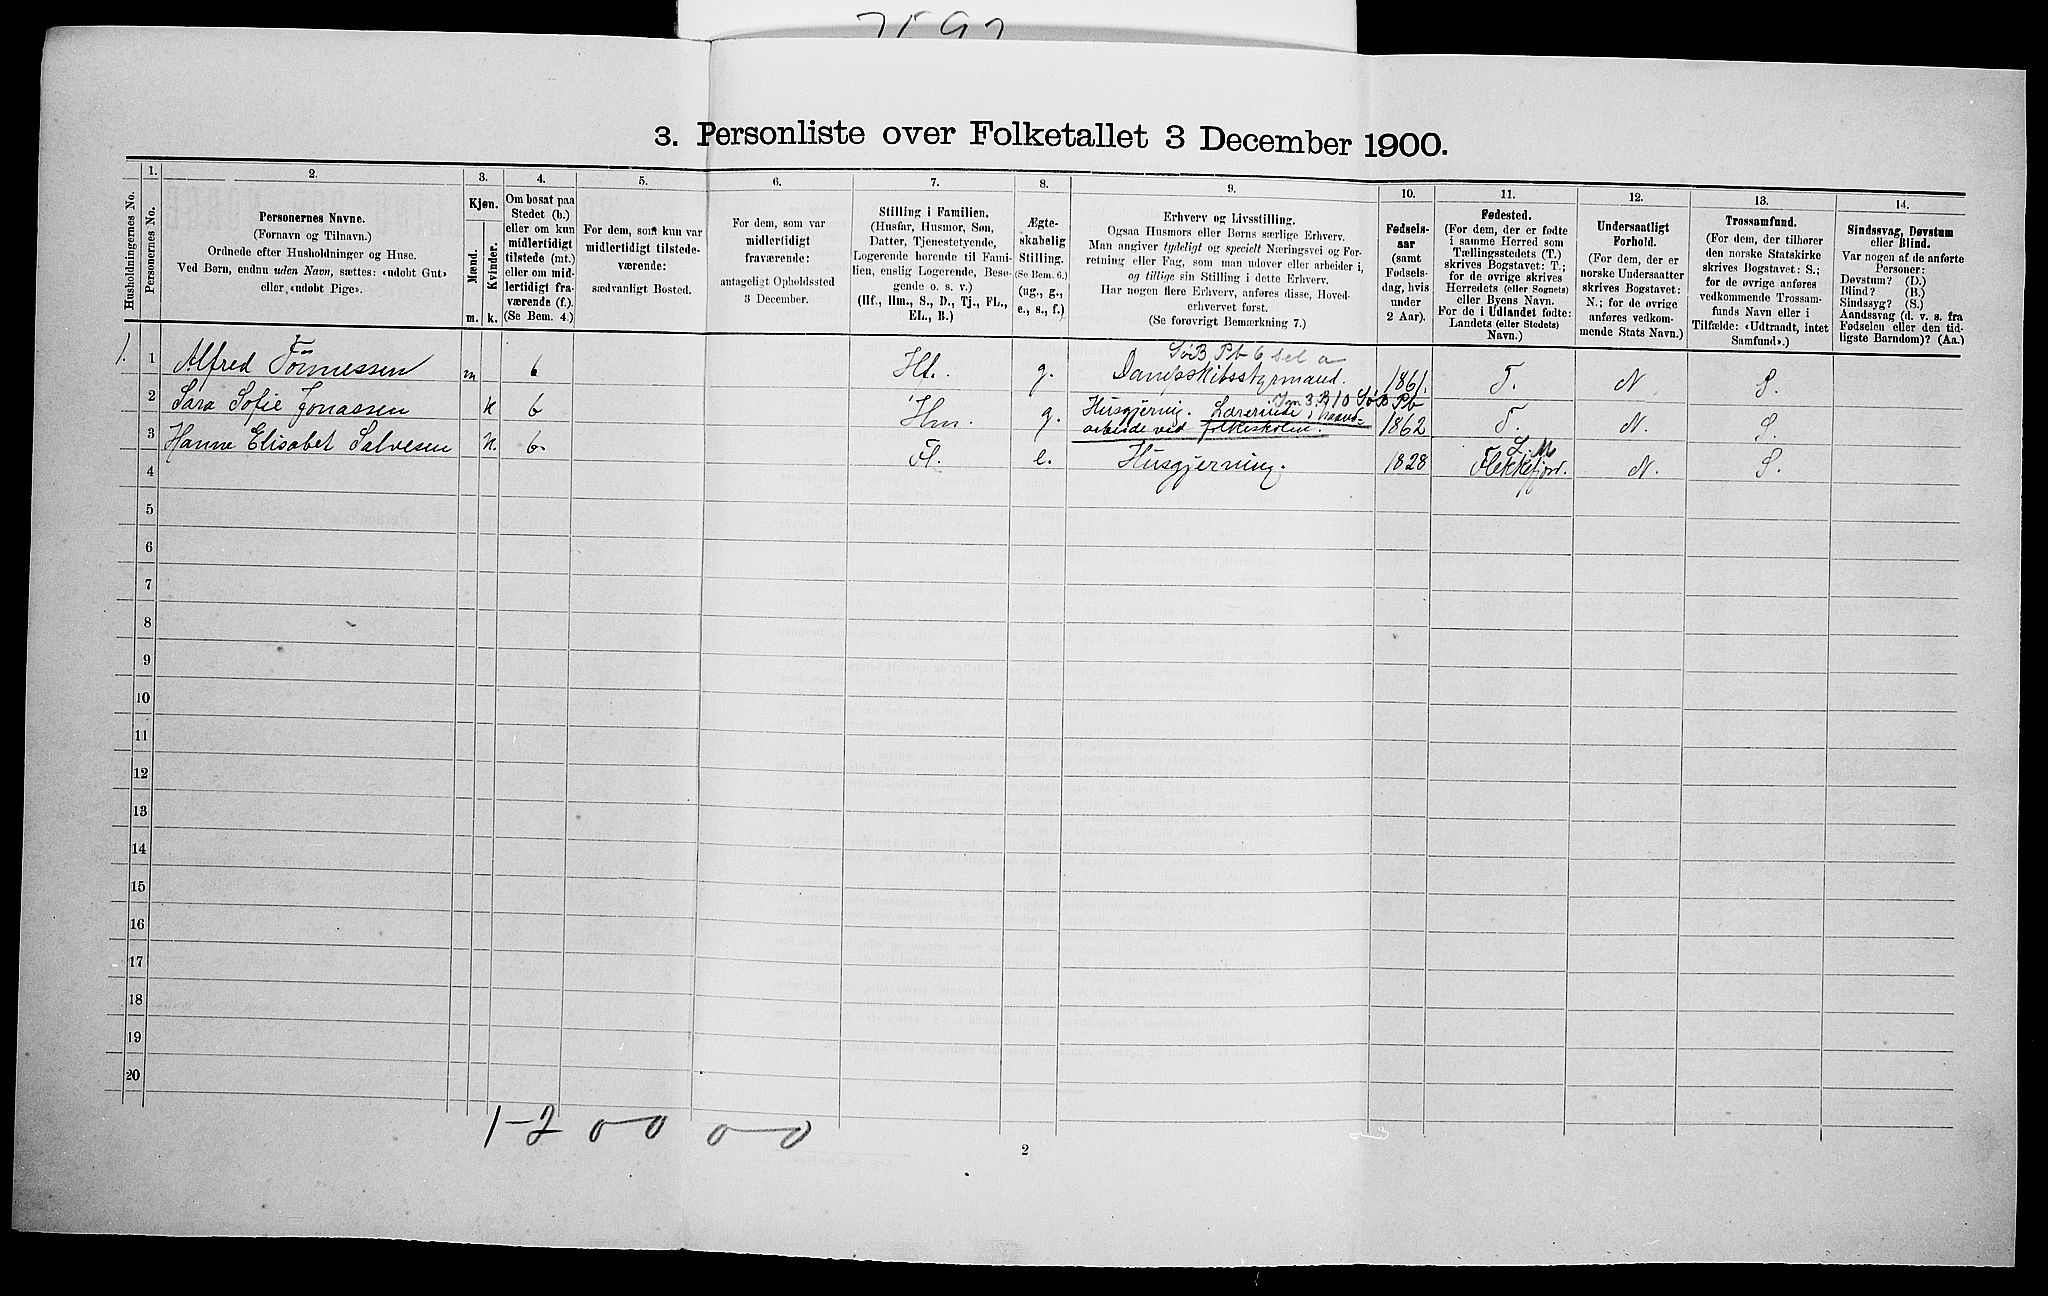 3. Personliste over Folketallet 3 December 1900.
Husholdningernes No.
1.
Personernes No.
2.
Personernes Navne.
(Fornavn og Tilnavn.)
Ordnede efter Husholdninger og Huse.
Ved Børn, endnu uden Navn, sættes: «udøbt Gut»
eller «udøbt Pige».
3.
Kjøn.
Mænd.
Kvinder.
m. k.
4.
Om bosat paa
Stedet (b.)
eller om kun
midlertidigt
tilstede (mt.)
eller om mid-
lertidigt fra-
værende (f.).
(Se Bem. 4.)
5.
For dem, som kun var
midlertidigt tilstede-
værende:
sædvanligt Bosted.
6.
For dem, som var
midlertidigt
fraværende:
antageligt Opholdssted
3 December.
7.
Stilling i Familien.
(Husfar, Husmor, Søn,
Datter, Tjenestetyende,
Logerende hørende til Fami-
lien, enslig Logerende, Besø-
gende o. s. v.)
(Hf., Hm., S., D., Tj., FL.,
EL., B.)
8.
Ægte-
skabelig
Stilling.
(Se Bem. 6.)
(ug., g.,
e., s., f.)
9.
Erhverv og Livsstilling.
Ogsaa Husmors eller Børns særlige Erhverv.
Man angiver tydeligt og specielt Næringsvei og For-
retning eller Fag, som man udøver eller arbeider i,
og tillige sin Stilling i dette Erhverv.
Har nogen flere Erhverv, anføres disse, Hoved-
erhvervet først.
(Se forøvrigt Bemærkning 7.)
10.
Fødsels-
aar
(samt
Fødsels-
dag, hvis
under
2 Aar).
11.
Fødested.
(For dem, der er fødte
i samme Herred som
Tællingsstedets (T.)
skrives Bogstavet: T.;
for de øvrige skrives
Herredets (eller Sognets)
eller Byens Navn.
For de i Udlandet fødte:
Landets (eller Stedets)
Navn.)
12.
Undersaatligt
Forhold.
(For dem, der er
norske Undersaatter
skrives Bogstavet:
N.; for de øvrige
anføres vedkom-
mende Stats Navn.)
13.
Trossamfund.
(For dem, der tilhører
den norske Statskirke
skrives Bogstavet: S.;
for de øvrige anføres
vedkommende Trossam-
funds Navn eller i
Tilfælde: «Udtraadt, intet
Samfund».)
14.
Sindssvag, Døvstum
eller Blind.
Var nogen af de anførte
Personer:
Døvstum? (D.)
Blind? (B.)
Sindssyg? (S.)
Aandssvag (d. v. s. fra
Fødselen eller den tid-
ligste Barndom)? (Aa.)
SøB Pb 6 sel a
1. 1 Alfred Tönnessen m b Hf. g. Dampskibsstyrmand. 1861. T. N S.
Im 3. B 10 SøB Pb
2 Sara Sofie Jonassen k b Hm. g. Husgjerning. Lærerinde i haand-
arbeide ved folkeskolen. 1862 T. N. S.
3 Hanne Elisabet Salvesen k. b. Fl. e. Husgjerning. 1828 Flekkefjor. N. S.
L. M
4
5
6
7
8
9
10
11
12
13
14
15
16
17
18
19
20
1-2 0-0 0-0
2